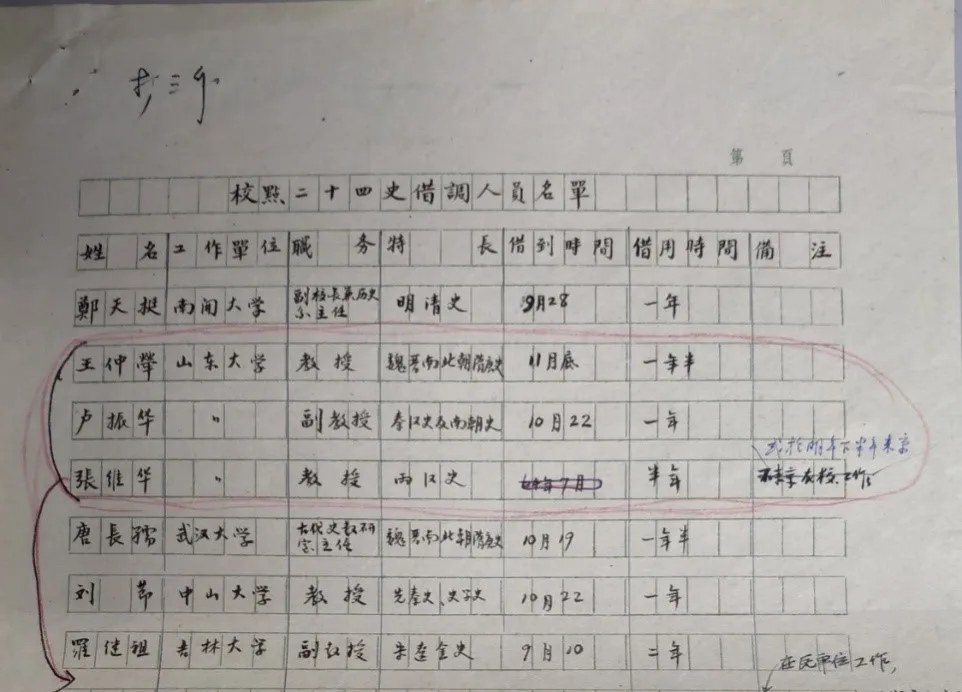 抄三份
第 頁
校點二十四史借調人員名單
姓名 工作單位 職务 特長 借到時間 借用時間 備注
鄭天挺 南開大学 副校长兼历史系主任 明清史 9月28 一年
王仲犖 山东大学 教授 魏晋南北朝隋唐史 11月底 一年半
卢振华 〃 副教授 秦汉史及南朝史 10月22 一年
或於明年下半年来京
張维华 〃 教授 两汉史 半年
唐長孺 武汉大学 古代史教研室主任 魏晋南北朝隋唐史 10月19 一年半
刘节 中山大学 教授 先秦史、史学史 10月22 一年
羅继祖 吉林大学 副教授 宋遼金史 9月10 二年
在民单位工作,